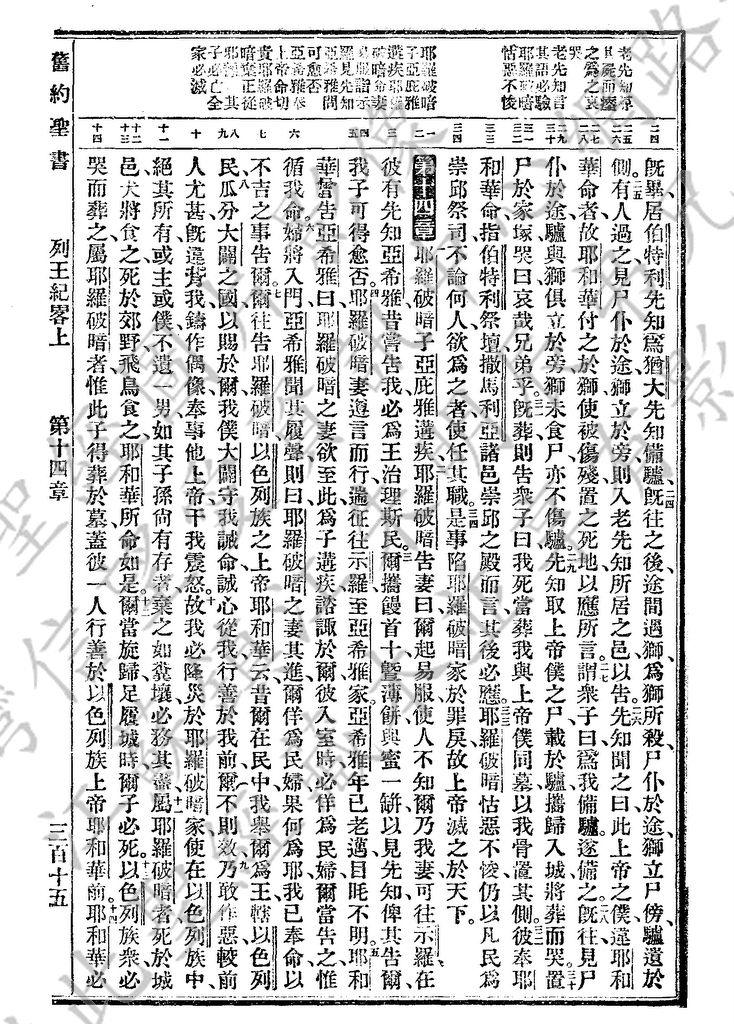 老先知尋
其屍而瘞
之為之哀
哭
老先知言
其語必驗
耶羅破暗
怙惡不悛
耶羅破暗
子亞庇雅
遘疾耶羅
破暗命妻
易服詣示
羅見先知
亞希雅問
可愈否
亞希雅奉
上帝命切
責耶羅破
暗棄正從
邪
子必亡全
家必滅
旣畢居伯特利先知爲猶大先知備驢旣往之後途間遇獅爲獅所殺尸仆於途獅立尸傍驢遺於
側有人過之見尸仆於途獅立於旁則入老先知所居之邑以告先知聞之曰此上帝之僕違耶和
華命者故耶和華付之於獅使被傷殘置之死地以應所言謂衆子曰爲我備驢遂備之旣往見尸
仆於途驢與獅俱立於旁獅未食尸亦不傷驢先知取上帝僕之尸載於驢攜歸入城將葬而哭置
尸於家塚哭曰哀哉兄弟乎旣葬則告衆子曰我死當葬我與上帝僕同墓以我骨置其側彼奉耶
和華命指伯特利祭壇撒馬利亞諸邑崇邱之殿而言其後必應耶羅破暗怙惡不悛仍以凡民爲
崇邱祭司不論何人欲爲之者使任其職是事陷耶羅破暗家於罪戾故上帝滅之於天下
第十四章 耶羅破暗子亞庇雅遘疾耶羅破暗告妻曰爾起易服使人不知爾乃我妻可往示羅在
彼有先知亞希雅昔嘗告我必爲王治理斯民爾攜饅首十曁薄餅與蜜一缾以見先知俾其告爾
我子可得愈否耶羅破暗妻遵言而行遄征往示羅至亞希雅家亞希雅年已老邁目眊不明耶和
華嘗告亞希雅曰耶羅破暗之妻欲至此爲子遘疾諮諏於爾彼入室時必佯爲民婦爾當告之惟
循我命婦將入門亞希雅聞其履聲則曰耶羅破暗之妻其進爾佯爲民婦果何爲耶我已奉命以
不吉之事告爾爾往告耶羅破暗以色列族之上帝耶和華云昔爾在民中我舉爾爲王轄以色列
民瓜分大闢之國以賜於爾我僕大闢守我誡命誠心從我行善於我前爾不則效乃敢作惡較前
人尤甚旣違背我鑄作偶像奉事他上帝干我震怒故我必降災於耶羅破暗家使在以色列族中
絕其所有或主或僕不遺一男如其子孫尙有存者棄之如糞壤必務其盡屬耶羅破暗者死於城
邑犬將食之死於郊野飛鳥食之耶和華所命如是爾當旋歸足履城時爾子必死以色列族衆必
哭而葬之屬耶羅破暗者惟此子得葬於墓蓋彼一人行善於以色列族上帝耶和華前耶和華必
舊約聖書 列王紀畧上 第十四章 三百十五